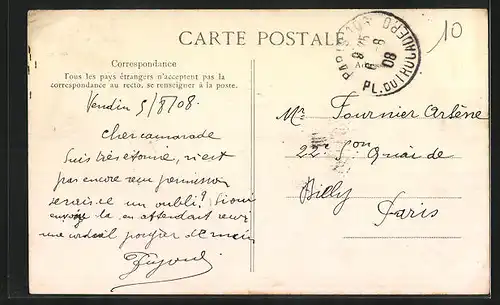 CARTE POSTALE
10
PARIS
8 25
6 - 8
08
PL. DU TROCADERO
Correspondance
Tous les pays étrangers n'acceptent pas la
correspondance au recto, se renseigner à la poste.
Vendin 5/8/08.
Cher camarade
Suis très étonné, n'est
pas encore reçu permission
serais-ce un oubli? Si oui
envoye la en attendant
une cordial poignée de main
Mr Fournier Arsène
22e Son Quai de
Billy
Paris